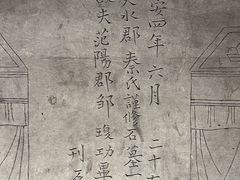 安四年六月 二十
水郡秦氏謹修石墓一
夫范陽郡鄒 功畢
刊